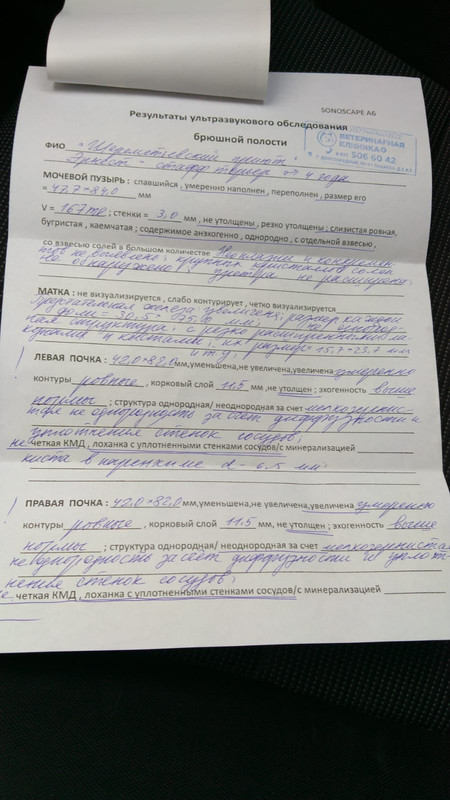 SONOSCAPE A6
Результаты ультразвукового обследования
брюшной полости
ВЕТЕРИНАРНАЯ
КЛИНИКА
506 60 42
ФИО
Эрнест - стафф терьер от 4 года
МОЧЕВОЙ ПУЗЫРЬ : спавшийся , умеренно наполнен , переполнен , размер его
= 47.7×84,0 мм
V = 167 ; стенки = 3,0 мм , не утолщены , резко утолщены ; слизистая ровная,
бугристая , каемчатая ; содержимое анэхогенно , однородно , с отдельной взвесью ,
со взвесью солей в большом количестве
не обнаружено уретра не расширена;
МАТКА : не визуализируется , слабо контурирует , четко визуализируется
Предстательная железа увеличена; размер каждой
доли = 30,5 × мм;
структура; с резко расширенными
и кистами; их размер= 15,7×23,7 мм
и т.д;
ЛЕВАЯ ПОЧКА : 42,0×82,0 мм,уменьшена,не увеличена,увеличена умеренно
контуры ровные , корковый слой 11.5 мм ,не утолщен ; эхогенность выше
нормы ; структура однородная/ неоднородная за счет мелкозернис-
тая неоднородность за счёт диффузности и
уплотнения стенок сосудов;
не четкая КМД , лоханка с уплотненными стенками сосудов/с минерализацией
киста в паренхиме d= 6,5 мм.
ПРАВАЯ ПОЧКА : 42,0×82,0 мм,уменьшена,не увеличена,увеличена умеренно
контуры ровные , корковый слой 11.5 мм, не утолщен ; эхогенность выше
нормы ; структура однородная/ неоднородная за счет мелкозернистая
неоднородность за счёт диффузности и уплот-
нения стенок сосудов;
не четкая КМД , лоханка с уплотненными стенками сосудов/с минерализацией